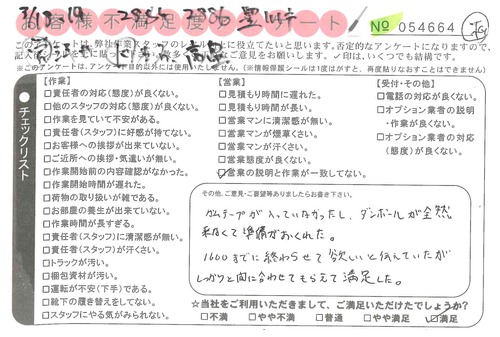 お客様不満足度アンケート
№ 054664
このアンケートは、弊社作業スタッフのレベル向上に役立てたいと思います。否定的なアンケートになりますので、
ご意見をお願いします。✓印は、いくつでも結構です。
※このアンケートは、アンケート目的以外には使用いたしません。(※情報保護シールは1度はがすと、再度貼りなおすことはできません)
チェックリスト
【作業】
□責任者の対応(態度)が良くない。
□他のスタッフの対応(態度)が良くない。
□作業を見ていて不安がある。
□責任者(スタッフ)に好感が持てない。
□お客様への挨拶が出来ていない。
□ご近所への挨拶・気遣いが無い。
□作業開始前の内容確認がなかった。
□作業開始時間が遅れた。
□荷物の取り扱いが雑である。
□お部屋の養生が出来ていない。
□作業時間が長すぎる。
□責任者(スタッフ)に清潔感が無い。
□責任者(スタッフ)が汗くさい。
□トラックが汚い。
□梱包資材が汚い。
□運転が不安(下手)である。
□靴下の履き替えをしてない。
□スタッフにやる気がみられない。
【営業】
□見積もり時間に遅れた。
□見積もり時間が長い。
□営業マンに清潔感が無い。
□営業マンが煙草くさい。
□営業マンが汗くさい。
□営業態度が良くない。
☑営業の説明と作業が一致してない。
【受付・その他】
□電話の対応が良くない。
□オプション業者の説明
・作業が良くない。
□オプション業者の対応
(態度)が良くない。
その他、ご意見・ご要望等ありましたらお書き下さい。
ガムテープが入っていなかったし、ダンボールが全然
来なくて準備がおくれた。
1600までに終わらせて欲しいと伝えていたが
しっかりと間に合わせてもらえて満足した。
☆当社をご利用いただきまして、ご満足いただけたでしょうか?
□不満 □やや不満 □普通 □やや満足 ☑満足